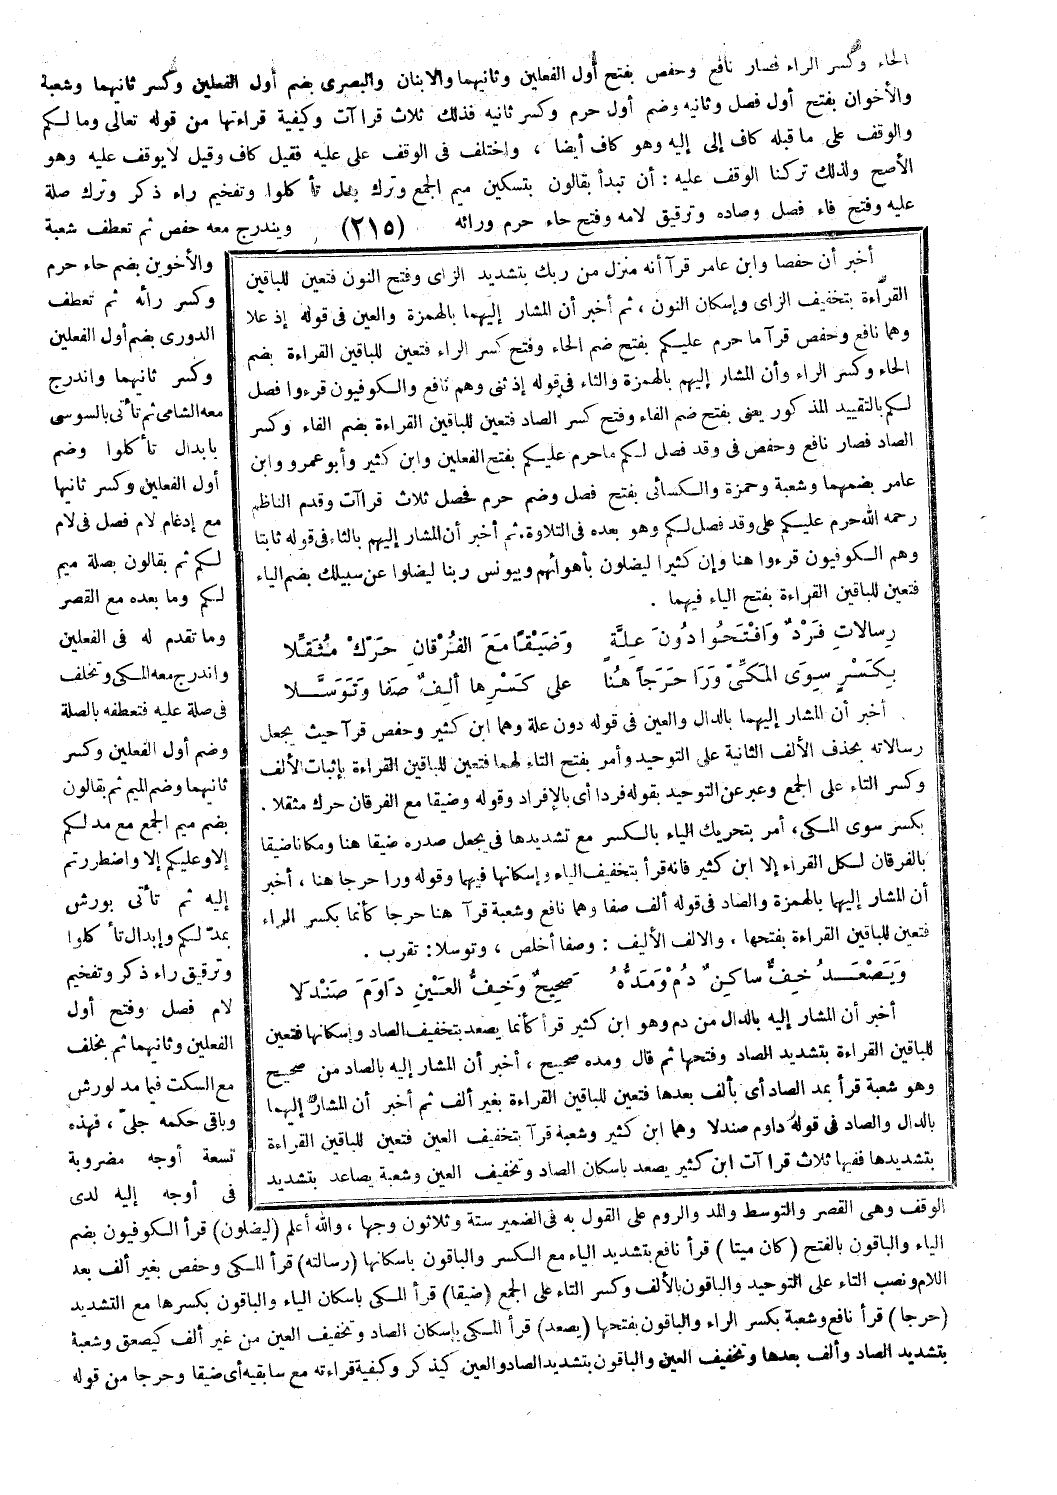 الحاء وكسر الراء فصار نافع وحفص بفتح أول الفعلين وثانيهما والابنان والبصرى بضم أول الفعلين وكسر ثانيهما وشعبة
والأخوان بفتح أول فصل وثانيه وضم أول حرم وكسر ثانيه فذلك ثلاث قرا آت وكيفية قراءتها من قوله تعالى وما لكم
والوقف على ما قبله كاف إلى إليه وهو كاف أيضا ، واختلف فى الوقف على عليه فقيل كاف وقيل لا يوقف عليه وهو
الأصح ولذلك تركنا الوقف عليه : أن تبدأ بقالون بتسكين ميم الجمع وترك بدل تأ كلوا وتفخيم راء ذكر وترك صلة
عليه وفتح فاء فصل وصاده وترقيق لامه وفتح حاء حرم ورائه (٢١٥) ويندرج معه حفص ثم تعطف شعبة
والأخوين بضم حاء حرم
وكسر رائه ثم تعطف
الدورى بضم أول الفعلين
وكسر ثانيهما واندرج
معه الشامى ثم تأتى بالسوسى
بابدال تأ كلوا وضم
أول الفعلين وكسر ثانيها
مع إدغام لام فصل فى لام
لكم ثم بقالون بصلة ميم
لكم وما بعده مع القصر
وما تقدم له فى الفعلين
واندرج معه المكى وتخلف
فى صلة عليه فتعطفه بالصلة
وضم أول الفعلين وكسر
ثانيهما وضم الميم ثم بقالون
بضم ميم الجمع مع مد لكم
إلا وعليكم إلا واضطررتم
إليه ثم تأتى بورش
بمد لكم وإبدال تأ كلوا
وترقيق راء ذكر وتفخيم
لام فصل وفتح أول
الفعلين وثانيهما ثم بخلف
مع السكت فيما مد لورش
وباقى حكمه جلىّ ، فهذه
تسعة أوجه مضروبة
فى أوجه إليه لدى
أخبر أن حفصا وابن عامر قرآ أنه منزل من ربك بتشديد الزاى وفتح النون فتعين للباقين
القراءة بتخفيف الزاى وإسكان النون ، ثم أخبر أن المشار إليهما بالهمزة والعين فى قوله إذ علا
وهما نافع وحفص قرآ ما حرم عليكم بفتح ضم الحاء وفتح كسر الراء فتعين للباقين القراءة بضم
الحاء وكسر الراء وأن المشار إليهم بالهمزة والثاء فى قوله إذ ثنى وهم نافع والكوفيون قرءوا فصل
لكم بالتقييد المذكور يعنى بفتح ضم الفاء وفتح كسر الصاد فتعين للباقين القراءة بضم الفاء وكسر
الصاد فصار نافع وحفص فى وقد فصل لكم ما حرم عليكم بفتح الفعلين وابن كثير وأبو عمرو وابن
عامر بضمهما وشعبة وحمزة والكسائى بفتح فصل وضم حرم فحصل ثلاث قرا آت وقدم الناظم
رحمه الله حرم عليكم على وقد فصل لكم وهو بعده فى التلاوة. ثم أخبر أن المشار إليهم بالثاء فى قوله ثابتا
وهم الكوفيون قرءوا هنا وإن كثيرا ليضلون بأهوائهم وبيونس ربنا ليضلوا عن سبيلك بضم الياء
فتعين للباقين القراءة بفتح الياء فيهما .
رِسالاتِ فَرْدٌ وَافْتَحُوا دُونَ عِلَّةٍ وَضَيْقًا مَعَ الفُرْقانِ حَرّكْ مُثَقّلا
بِكَسْرٍ سِوَى المَكىّ وَرَا حَرَجًا هُنا على كَسْرِها أَلِفٌ صَفا وَتَوَسَّلا
أخبر أن المشار إليهما بالدال والعين فى قوله دون علة وهما ابن كثير وحفص قرآ حيث يجعل
رسالاته بحذف الألف الثانية على التوحيد وأمر بفتح التاء لهما فتعين للباقين القراءة بإثبات الألف
وكسر التاء على الجمع وعبر عن التوحيد بقوله فردا أى بالإفراد وقوله وضيقا مع الفرقان حرك مثقلا .
بكسر سوى المكى، أمر بتحريك الياء بالكسر مع تشديدها فى يجعل صدره ضيقا هنا ومكانا ضيقا
بالفرقان لكل القراء إلا ابن كثير فانه قرأ بتخفيف الياء وإسكانها فيهما وقوله ورا حرجا هنا ، أخبر
أن المشار إليهما بالهمزة والصاد فى قوله ألف صفا وهما نافع وشعبة قرآ هنا حرجا كأنما بكسر الراء
فتعين للباقين القراءة بفتحها . والالف الأليف : وصفا أخلص ، وتوسلا: تقرب .
وَيَصْعَدُ خِفٌّ ساكِنٌ دُمْ وَمَدُّهُ صَحِيحٌ وَخِفُّ العَيْنِ دَاوَمَ صَنْدَلا
أخبر أن المشار إليه بالدال من دم وهو ابن كثير قرأ كأنما يصعد بتخفيف الصاد وإسكانها فتعين
للباقين القراءة بتشديد الصاد وفتحها ثم قال ومده صحيح ، أخبر أن المشار إليه بالصاد من صحيح
وهو شعبة قرأ بمد الصاد أى بألف بعدها فتعين للباقين القراءة بغير ألف ثم أخبر أن المشار إليهما
بالدال والصاد فى قوله داوم صندلا وهما ابن كثير وشعبة قرآ بتخفيف العين فتعين للباقين القراءة
بتشديدها ففيها ثلاث قرا آت ابن كثير يصعد باسكان الصاد وتخفيف العين وشعبة يصاعد بتشديد
الوقف وهى القصر والتوسط والمد والروم على القول به فى الضمير ستة وثلاثون وجها ، والله أعلم (ليضلون) قرأ الكوفيون بضم
الياء والباقون بالفتح (كان ميتا) قرأ نافع بتشديد الياء مع الكسر والباقون باسكانها (رسالته) قرأ المكى وحفص بغير ألف بعد
اللام ونصب التاء على التوحيد والباقون بالألف وكسر التاء على الجمع (ضيقا) قرأ المكى باسكان الياء والباقون بكسرها مع التشديد
(حرجا) قرأ نافع وشعبة بكسر الراء والباقون بفتحها (يصعد) قرأ المكى بإسكان الصاد وتخفيف العين من غير ألف كيصعق وشعبة
بتشديد الصاد وألف بعدها وتخفيف العين والباقون بتشديد الصاد والعين كيذكر وكيفية قراءته مع سابقيه أى ضيقا وحرجا من قوله